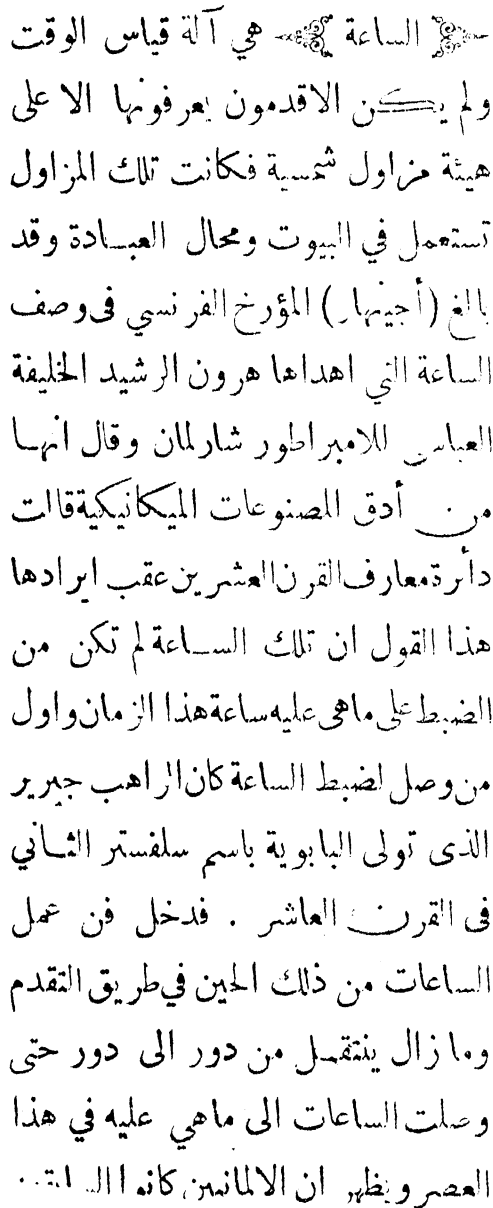 الساعة هي آلة قياس الوقت
ولم يكن الاقدمون يعرفونها الا على
هيئة مزاول شمسية فكانت تلك المزاول
تستعمل في البيوت ومحال العبادة وقد
بالغ (أجينهار) المؤرخ الفرنسي فى وصف
الساعة التي اهداها هرون الرشيد الخليفة
العباسي للامبراطور شارلمان وقال انها
من أدق المصنوعات الميكانيكية قالت
دائرة معارف القرن العشرين عقب ايرادها
هذا القول ان تلك الساعة لم تكن من
الضبط على ماهى عليه ساعة هذا الزمان واول
من وصل لضبط الساعة كان الراهب جيرير
الذى تولى البابوية باسم سلفستر الثاني
فى القرن العاشر . فدخل فن عمل
الساعات من ذلك الحين في طريق التقدم
وما زال ينتقل من دور الى دور حتى
وصلت الساعات الى ماهي عليه في هذا
العصر ويظهر ان الالمانيين كانوا السابقين